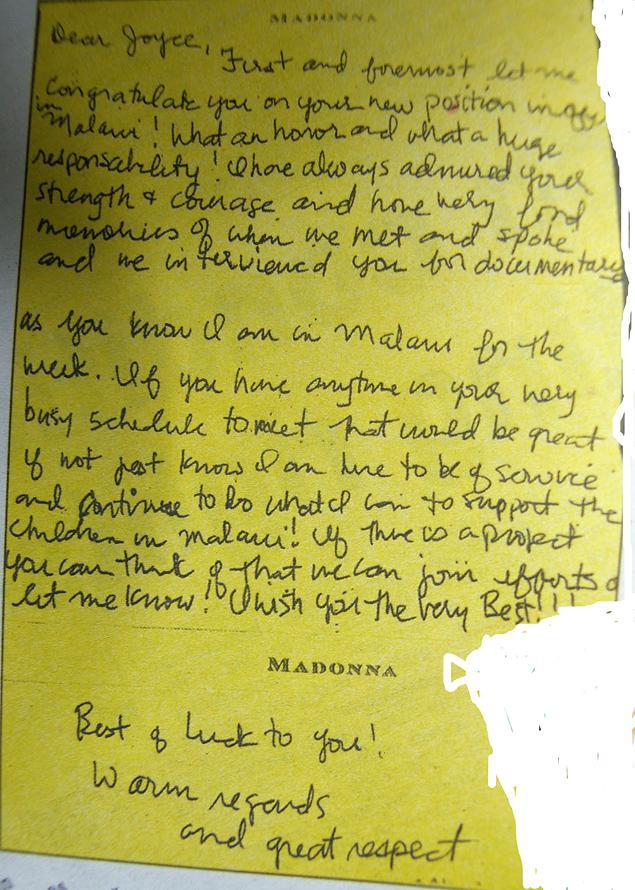 MADONNA
Dear Joyce,
First and foremost let me
Congratulate you on your new position in
in
Malawi! What an honor and what a huge
responsability! I have always admired your
strength & courage and have very fond
memories of when we met and spoke
and we interviewed you for documentary
as you know I am in Malawi for the
week. If you have anytime in your very
busy schedule to meet that would be great
if not just know I am here to be of service
and continue to do what I can to support the
children in Malawi! If there is a project
you can think of that we can join efforts
let me know! I wish you the very Best!!!
MADONNA
Best of luck to you!
Warm regards
and great respect